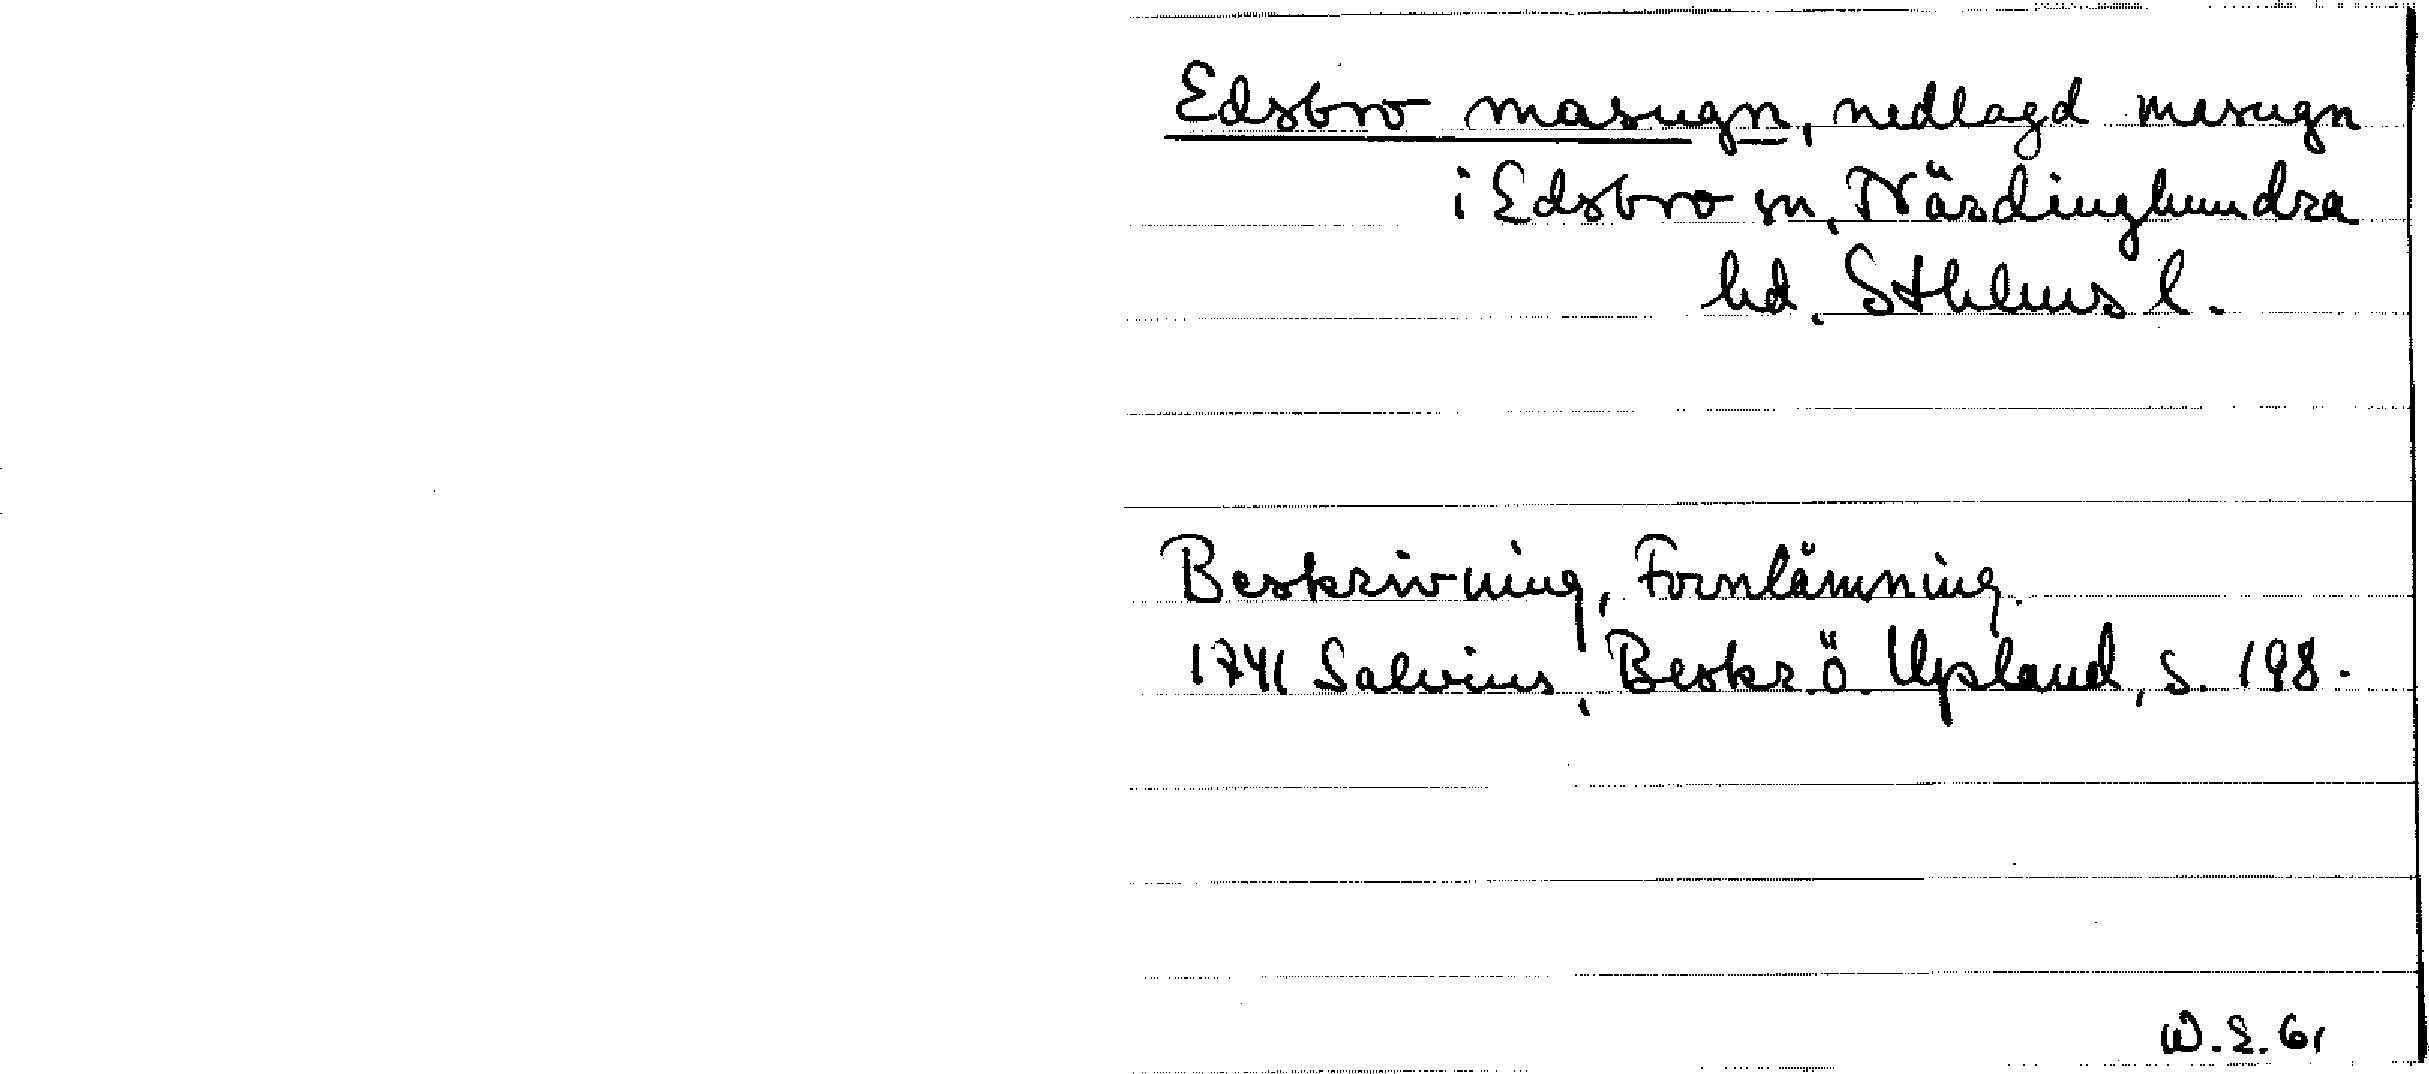 Edsbro masugn, nedlagd masugn
i Edsbro sn, Närdinghundra
hd, Sthlms l.
Beskrivning, Fornlämning.
1741 Salvius, Beskr. ö. Upland, s. 198.
W.S. 61